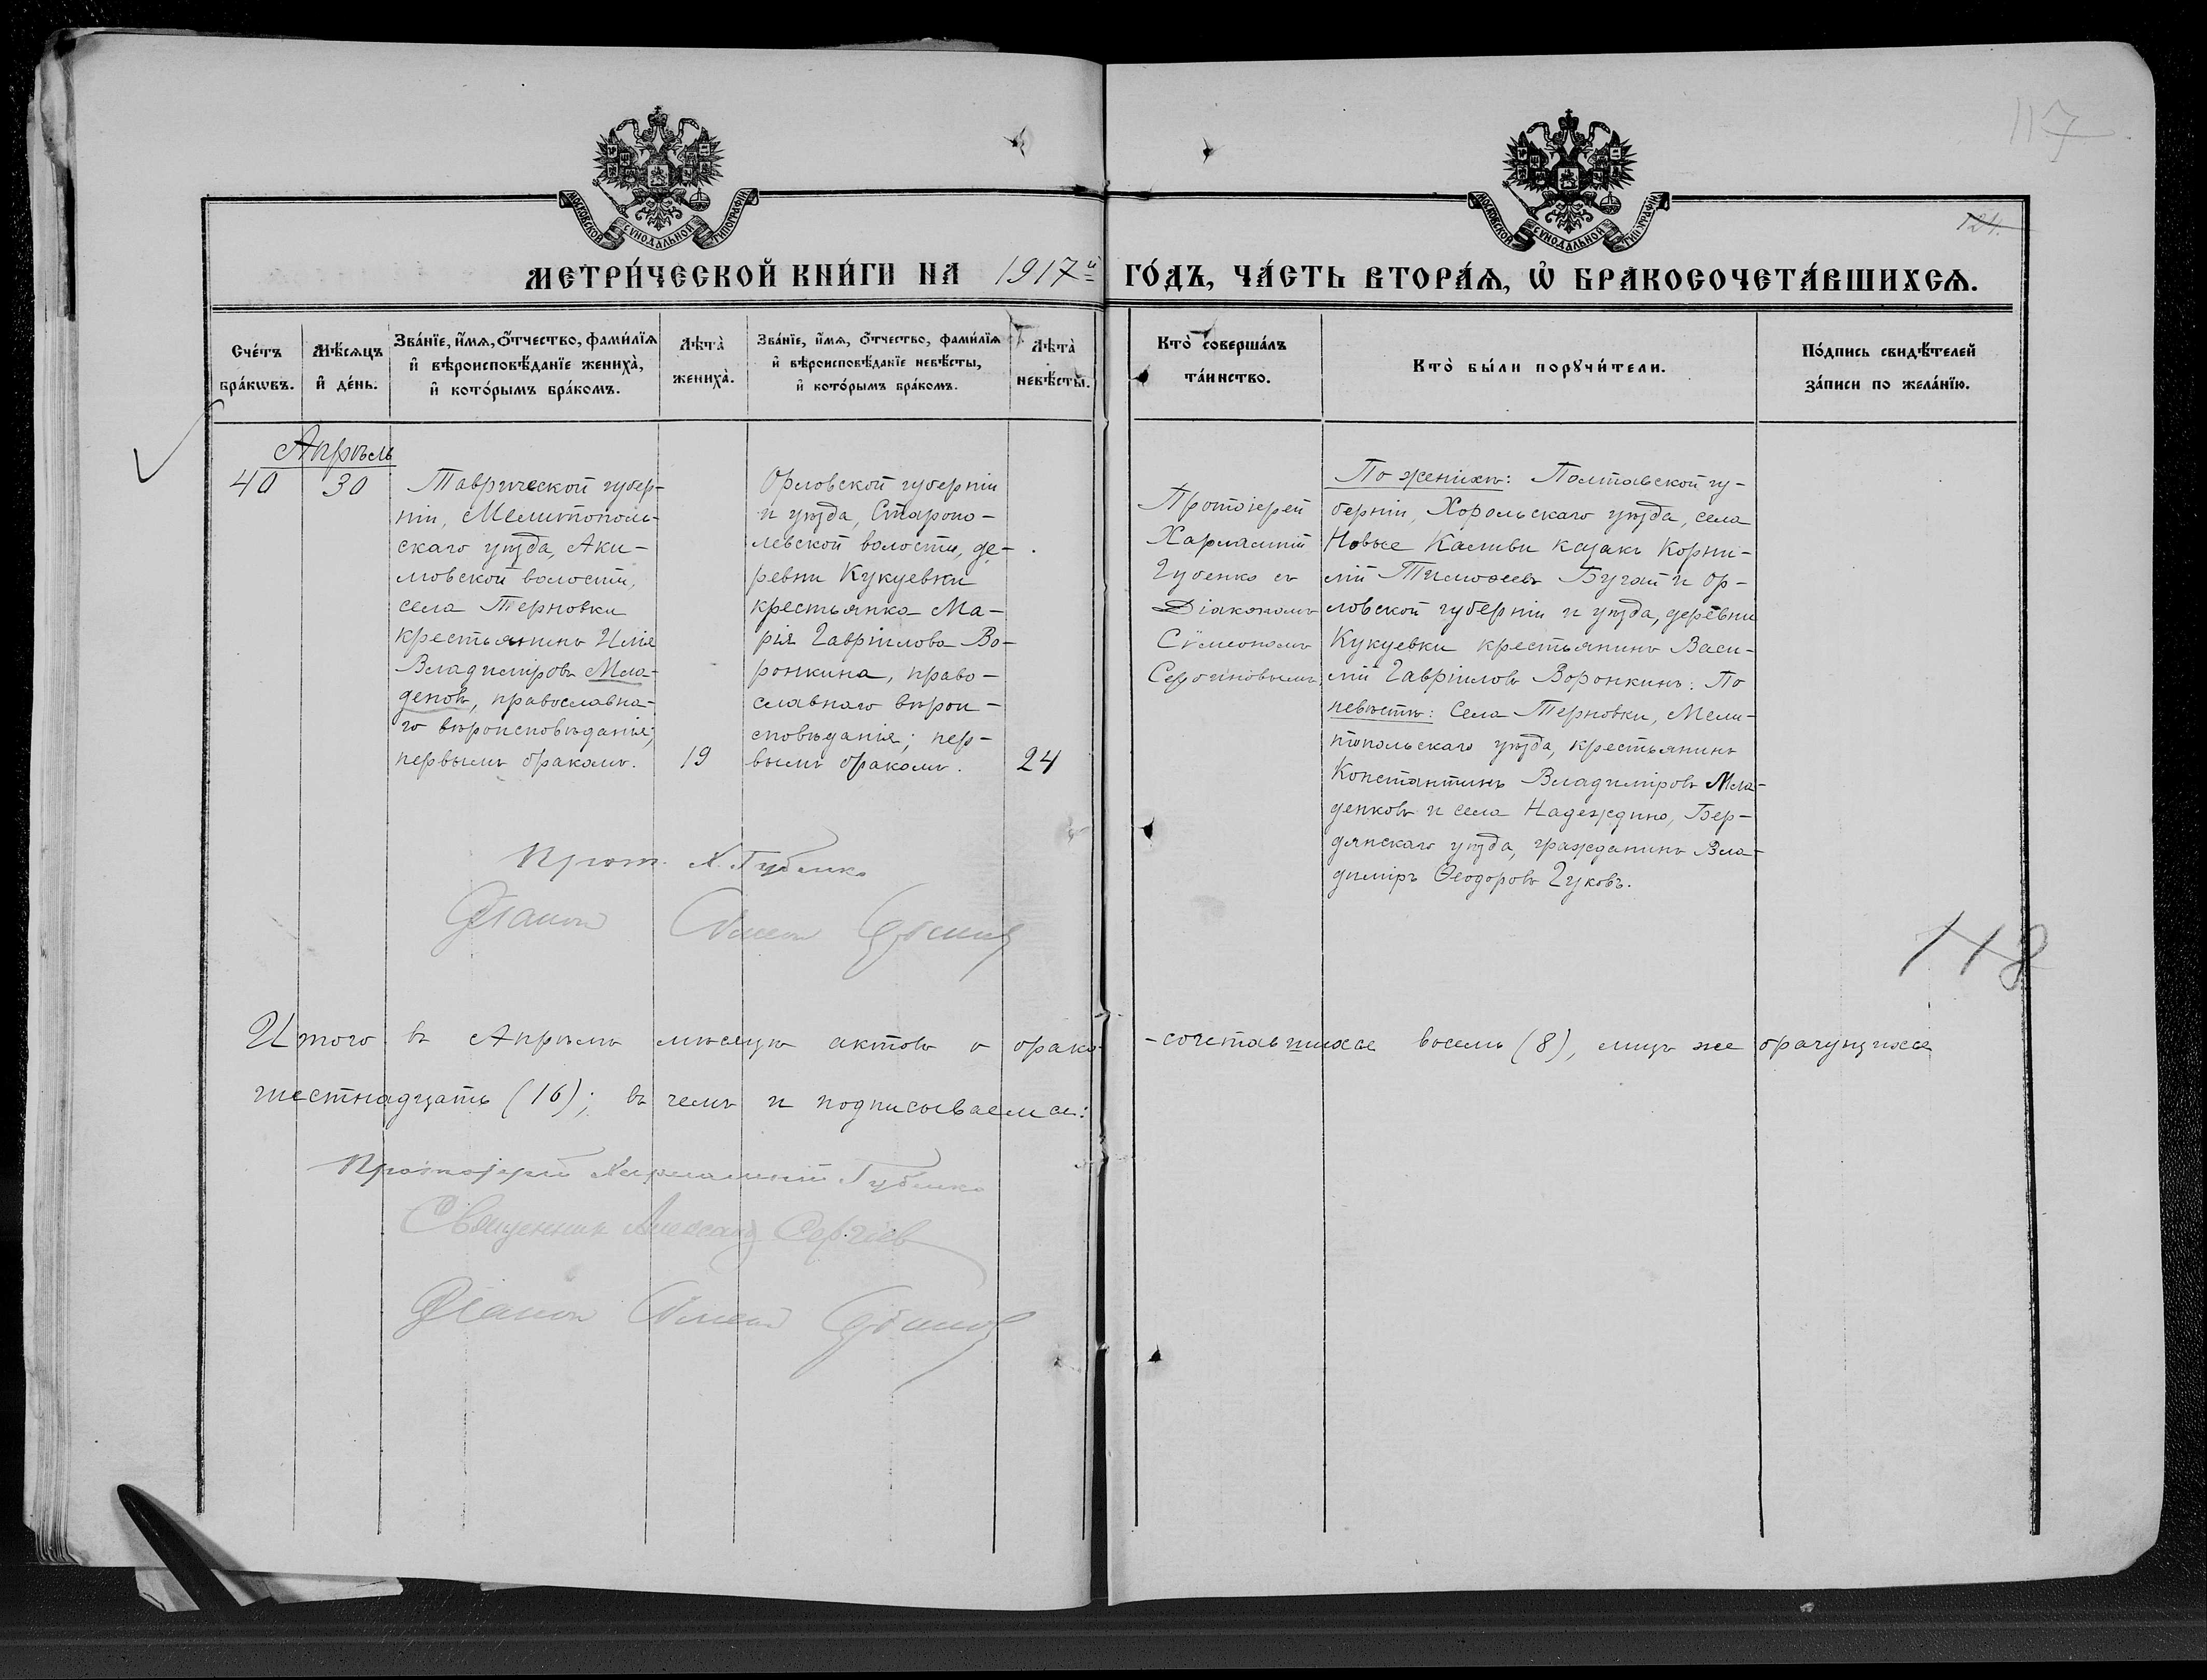 117
124.
МОСКОВСКОЙ СѴНОДАЛЬНОЙ ТИПОГРАФІИ
МОСКОВСКОЙ СѴНОДАЛЬНОЙ ТИПОГРАФІИ
МЕТРИ́ЧЕСКОЙ КНИ́ГИ НА 1917й ГО́ДЪ, ЧА́СТЬ ВТОРА́Ѧ, Ѡ҆ БРАКОСОЧЕТА́ВШИХСѦ.
Сче́тъ
бра́кѡвъ.
Мѣ́сѧцъ
и҆ де́нь.
Зва́нїе, и҆́мѧ, ѻ҆́тчество, фами́лїѧ
и҆ вѣроисповѣ́данїе жениха̀,
и҆ кото́рымъ бра́комъ.
Лѣта̀
жениха̀.
Зва́нїе, и҆́мѧ, ѻ҆́тчество, фами́лїѧ
и҆ вѣроисповѣ́данїе невѣ́сты,
и҆ кото́рымъ бра́комъ.
Лѣта̀
невѣ́сты.
Кто̀ соверша́лъ
та́инство.
Кто̀ бы́ли порꙋчи́тели.
По́дпись свидѣ́телей
за́писи по жела́нїю.
Апрѣль
40 30
Таврической губер-
ніи, Мелитополь-
скаго уѣзда, Аки-
мовской волости,
села Терновки
крестьянинъ Илія
Владиміровъ Мла-
деновъ, православна-
го вѣроисповѣданія;
первымъ бракомъ.
19
Орловской губерніи
и уѣзда, Старопо-
левской волости, де-
ревни Кукуевки
крестьянка Ма-
рія Гавріилова Во-
ронкина, право-
славнаго вѣрои-
сповѣданія; пер-
вымъ бракомъ.
24
Протоіерей
Харлампій
Губенко съ
Діакономъ
Сѵмеономъ
По женихѣ: Полтавской гу-
берніи, Хорольскаго уѣзда, села
Новые казакъ Корни-
лій Тимоѳеевъ Бугай и Ор-
ловской губерніи и уѣзда, деревни
Кукуевки крестьянинъ Васи-
лій Гавріиловъ Воронкинъ: По
невѣстѣ: Села Терновки, Мели-
топольскаго уѣзда, крестьянинъ
Константинъ Владиміровъ Мла-
денковъ и села Надеждино, Бер-
дянскаго уѣзда, гражданинъ Вла-
диміръ Ѳеодоровъ Гуковъ.
Прот. Х. Губенко
Діаконъ Сѵмеон
118
Итого въ Апрѣлѣ мѣсяцѣ актовъ о брако-сочетавшихся восемь (8), лицъ же брачущихся
шестнадцать (16); въ чемъ и подписываемся:
Протоіерей Харлампій Губенко
Священникъ Александ Сергіев
Діаконъ Сѵмеон